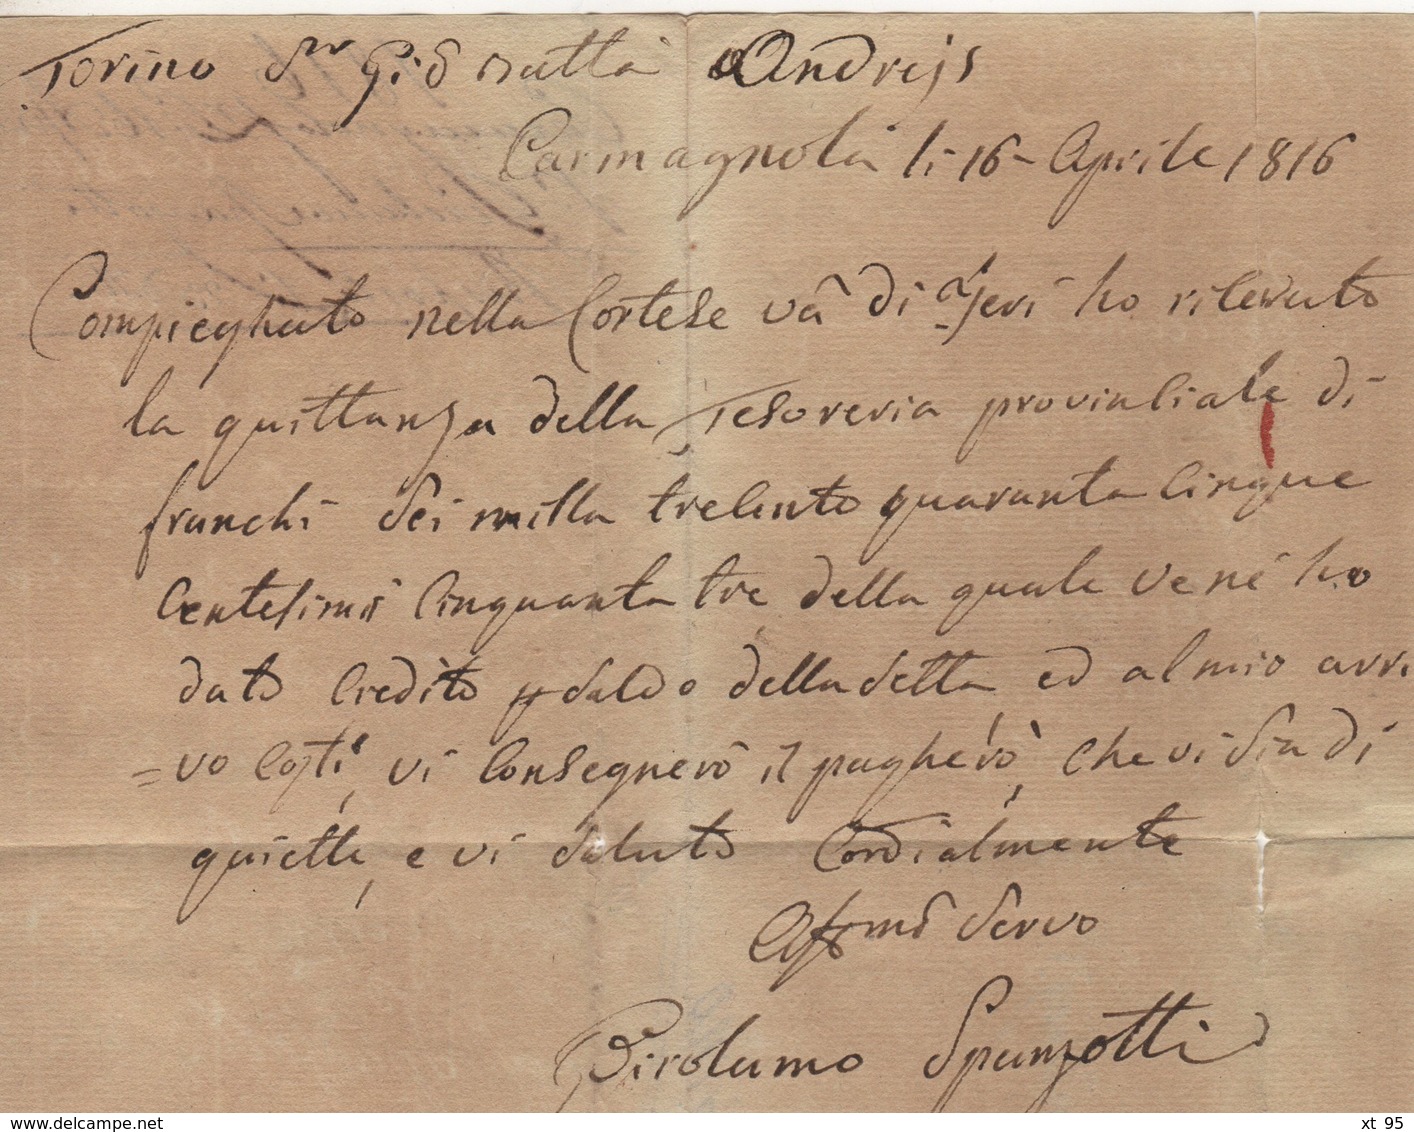 Torino Sr Gio Batta Andreis
Carmagnola li 16 Aprile 1816
Compieghato nella Cortese va di Jeri ho rilevato
la quittanza della Tesoreria provinciale di
franchi sei milla trecento quaranta cinque
Centesimi Cinquanta tre della quale ve né ho
dato Credito p saldo della detta ed al mio arri
=vo Costi, vi Consegnerò il pagherò, che vi sia di
quiette, e vi saluto Cordialmente
Affmo Servo
Girolamo Spanzotti
www.delcampe.net
xt 95